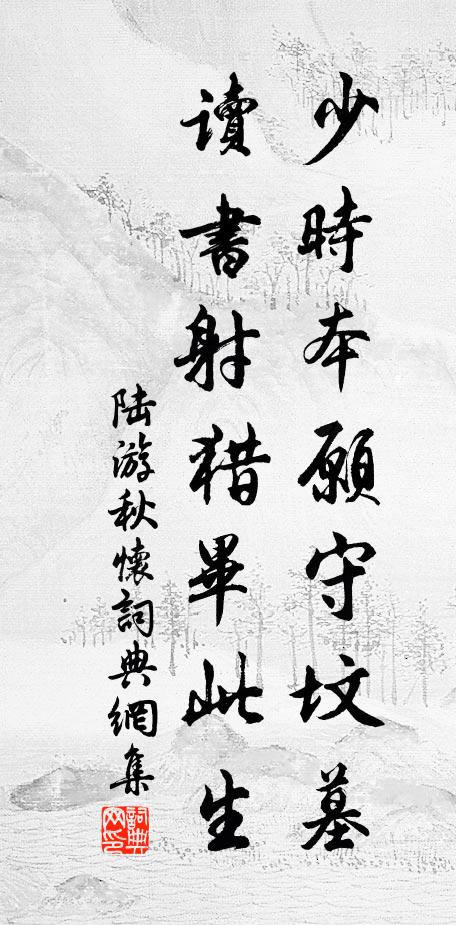 少時本願守坟墓
讀書射猎畢此生
陆游秋懷詞典網集
詞典网印